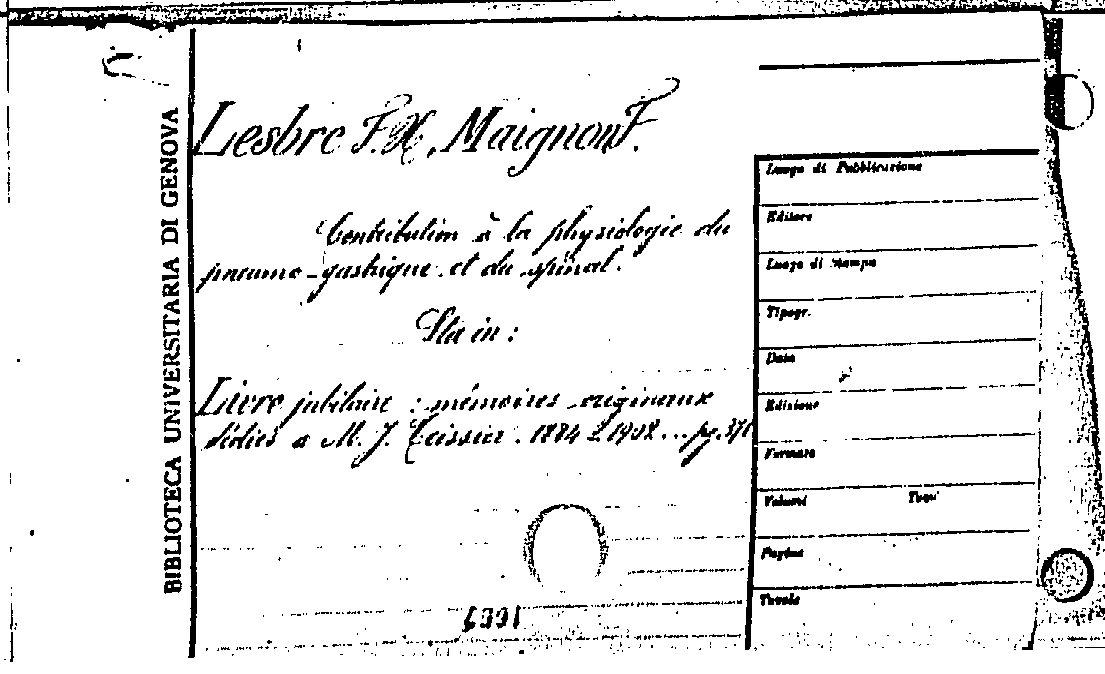 BIBLIOTECA UNIVERSITARIA DI GENOVA
Lesbre F. X., Maignon F.
Contribution à la physiologie du
pneumo-gastrique et du spinal.
Sta in:
Livre jubilaire : mémoires originaux
dédiés a M. J. Teissier. 1884-1908... pg. 371
Luogo di Pubblicazione
Editore
Luogo di Stampa
Tipogr.
Data
Edizione
Formato
Volumi Tomi
Pagine
Tavole